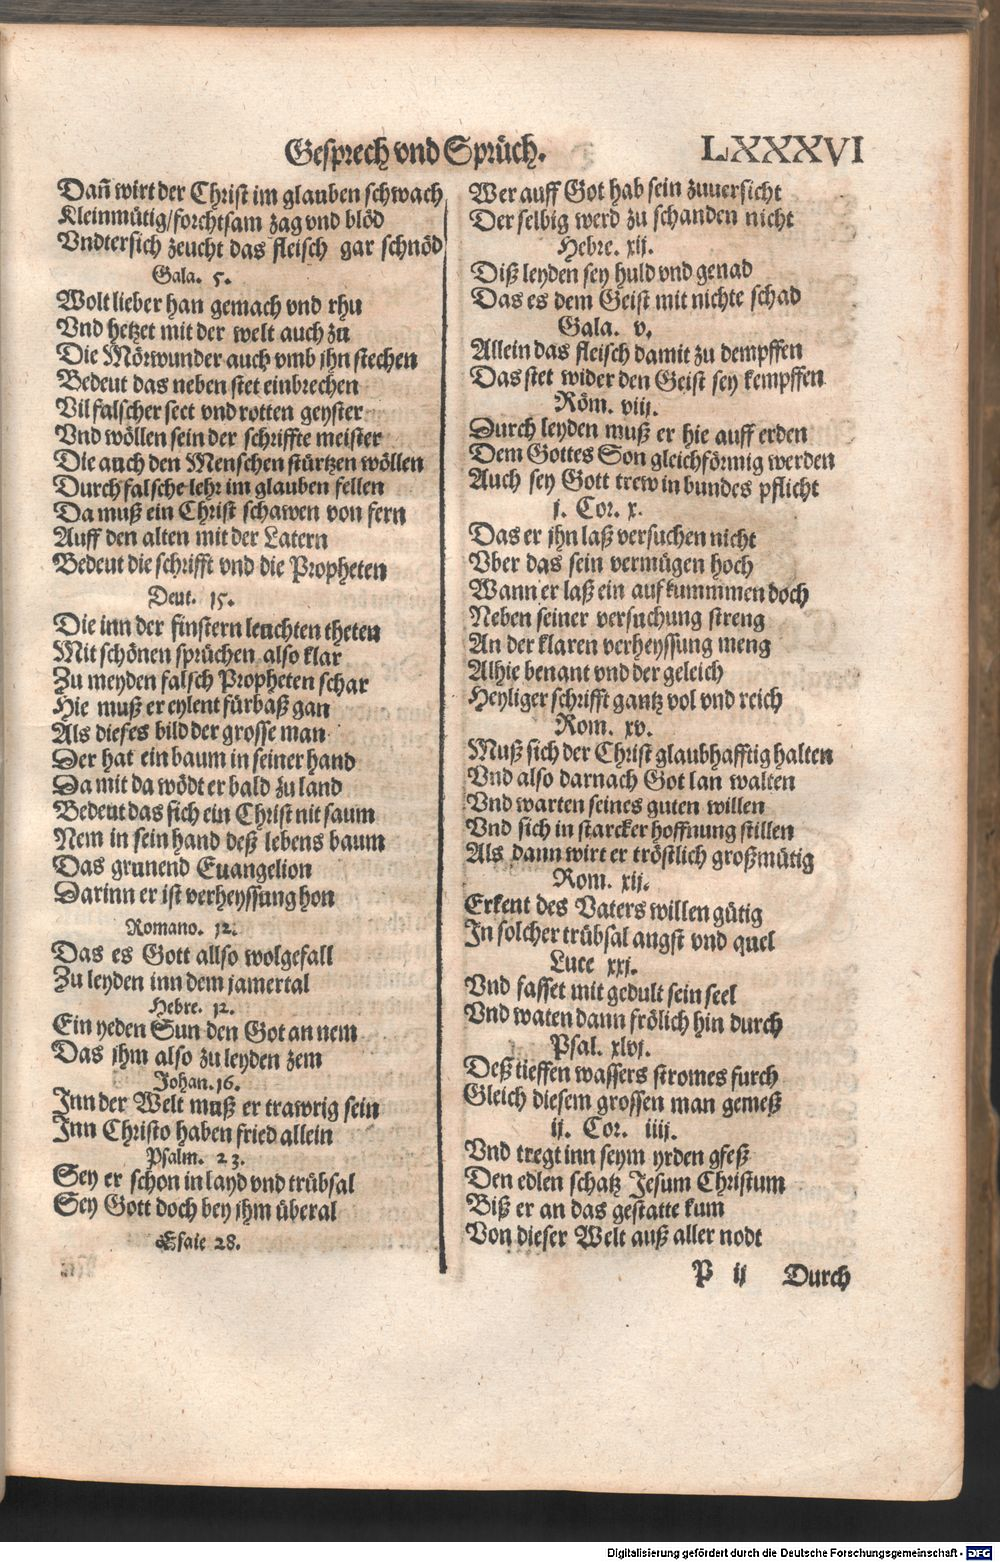 Gesprech vnd Sprüch. LXXXVI
Dañ wirt der Christ im glauben schwach
Kleinmütig/forchtsam zag vnd blöd
Vndter sich zeucht das fleisch gar schnöd
Gala. 5.
Wolt lieber han gemach vnd rhu
Vnd hetzet mit der welt auch zu
Die Mörwunder auch vmb jhn stechen
Bedeut das neben stet einbrechen
Vil falscher sect vnd rotten geyster
Vnd wöllen sein der schriffte meister
Die auch den Menschen stürtzen wöllen
Durch falsche lehr im glauben fellen
Da muß ein Christ schawen von fern
Auff den alten mit der Latern
Bedeut die schrifft vnd die Propheten
Deut. 15.
Die inn der finstern leuchten theten
Mit schönen sprüchen also klar
Zu meyden falsch Propheten schar
Hie muß er eylent fürbaß gan
Als diefes bild der grosse man
Der hat ein baum in seiner hand
Da mit da wödt er bald zu land
Bedeut das sich ein Christ nit saum
Nem in sein hand deß lebens baum
Das grunend Euangelion
Darinn er ist verheyssung hon
Romano. 12.
Das es Gott allso wolgefall
Zu leyden inn dem jamertal
Hebre. 12.
Ein yeden Sun den Got an nem
Das jhm also zu leyden zem
Johan. 16.
Inn der Welt muß er trawrig sein
Inn Christo haben fried allein
Psalm. 23.
Sey er schon in layd vnd trübsal
Sey Gott doch bey jhm überal
Esaie 28.
Wer auff Got hab sein zuuersicht
Der selbig werd zu schanden nicht
Hebre. xij.
Diß leyden sey huld vnd genad
Das es dem Geist mit nichte schad
Gala. v.
Allein das fleisch damit zu dempffen
Das stet wider den Geist sey kempffen
Röm. viij.
Durch leyden muß er hie auff erden
Dem Gottes Son gleichförmig werden
Auch sey Gott trew in bundes pflicht
j. Cor. x.
Das er jhn laß versuchen nicht
Vber das sein vermügen hoch
Wann er laß ein aufkummmen doch
Neben seiner versuchung streng
An der klaren verheyssung meng
Alhie benant vnd der geleich
Heyliger schrifft gantz vol vnd reich
Rom. xv.
Muß sich der Christ glaubhafftig halten
Vnd also darnach Got lan walten
Vnd warten seines guten willen
Vnd sich in starcker hoffnung stillen
Als dann wirt er tröstlich großmütig
Rom. xij.
Erkent des Vaters willen gütig
In solcher trübsal angst vnd quel
Luce xxj.
Vnd fasset mit gedult sein seel
Vnd waten dann frölich hin durch
Psal. xlvj.
Deß tieffen wassers stromes furch
Gleich diesem grossen man gemeß
ij. Cor. iiij.
Vnd tregt inn seym yrden gfeß
Den edlen schatz Jesum Christum
Biß er an das gestatte kum
Von dieser Welt auß aller nodt
P ij Durch
Digitalisierung gefördert durch die Deutsche Forschungsgemeinschaft - DFG